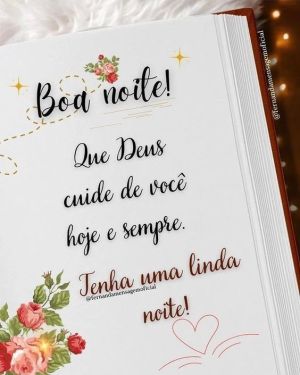 Boa noite!
Que Deus
cuide de você
hoje e sempre.
Tenha uma linda
@fernandamensagemoficial
noite!
@fernandamensagemoficial